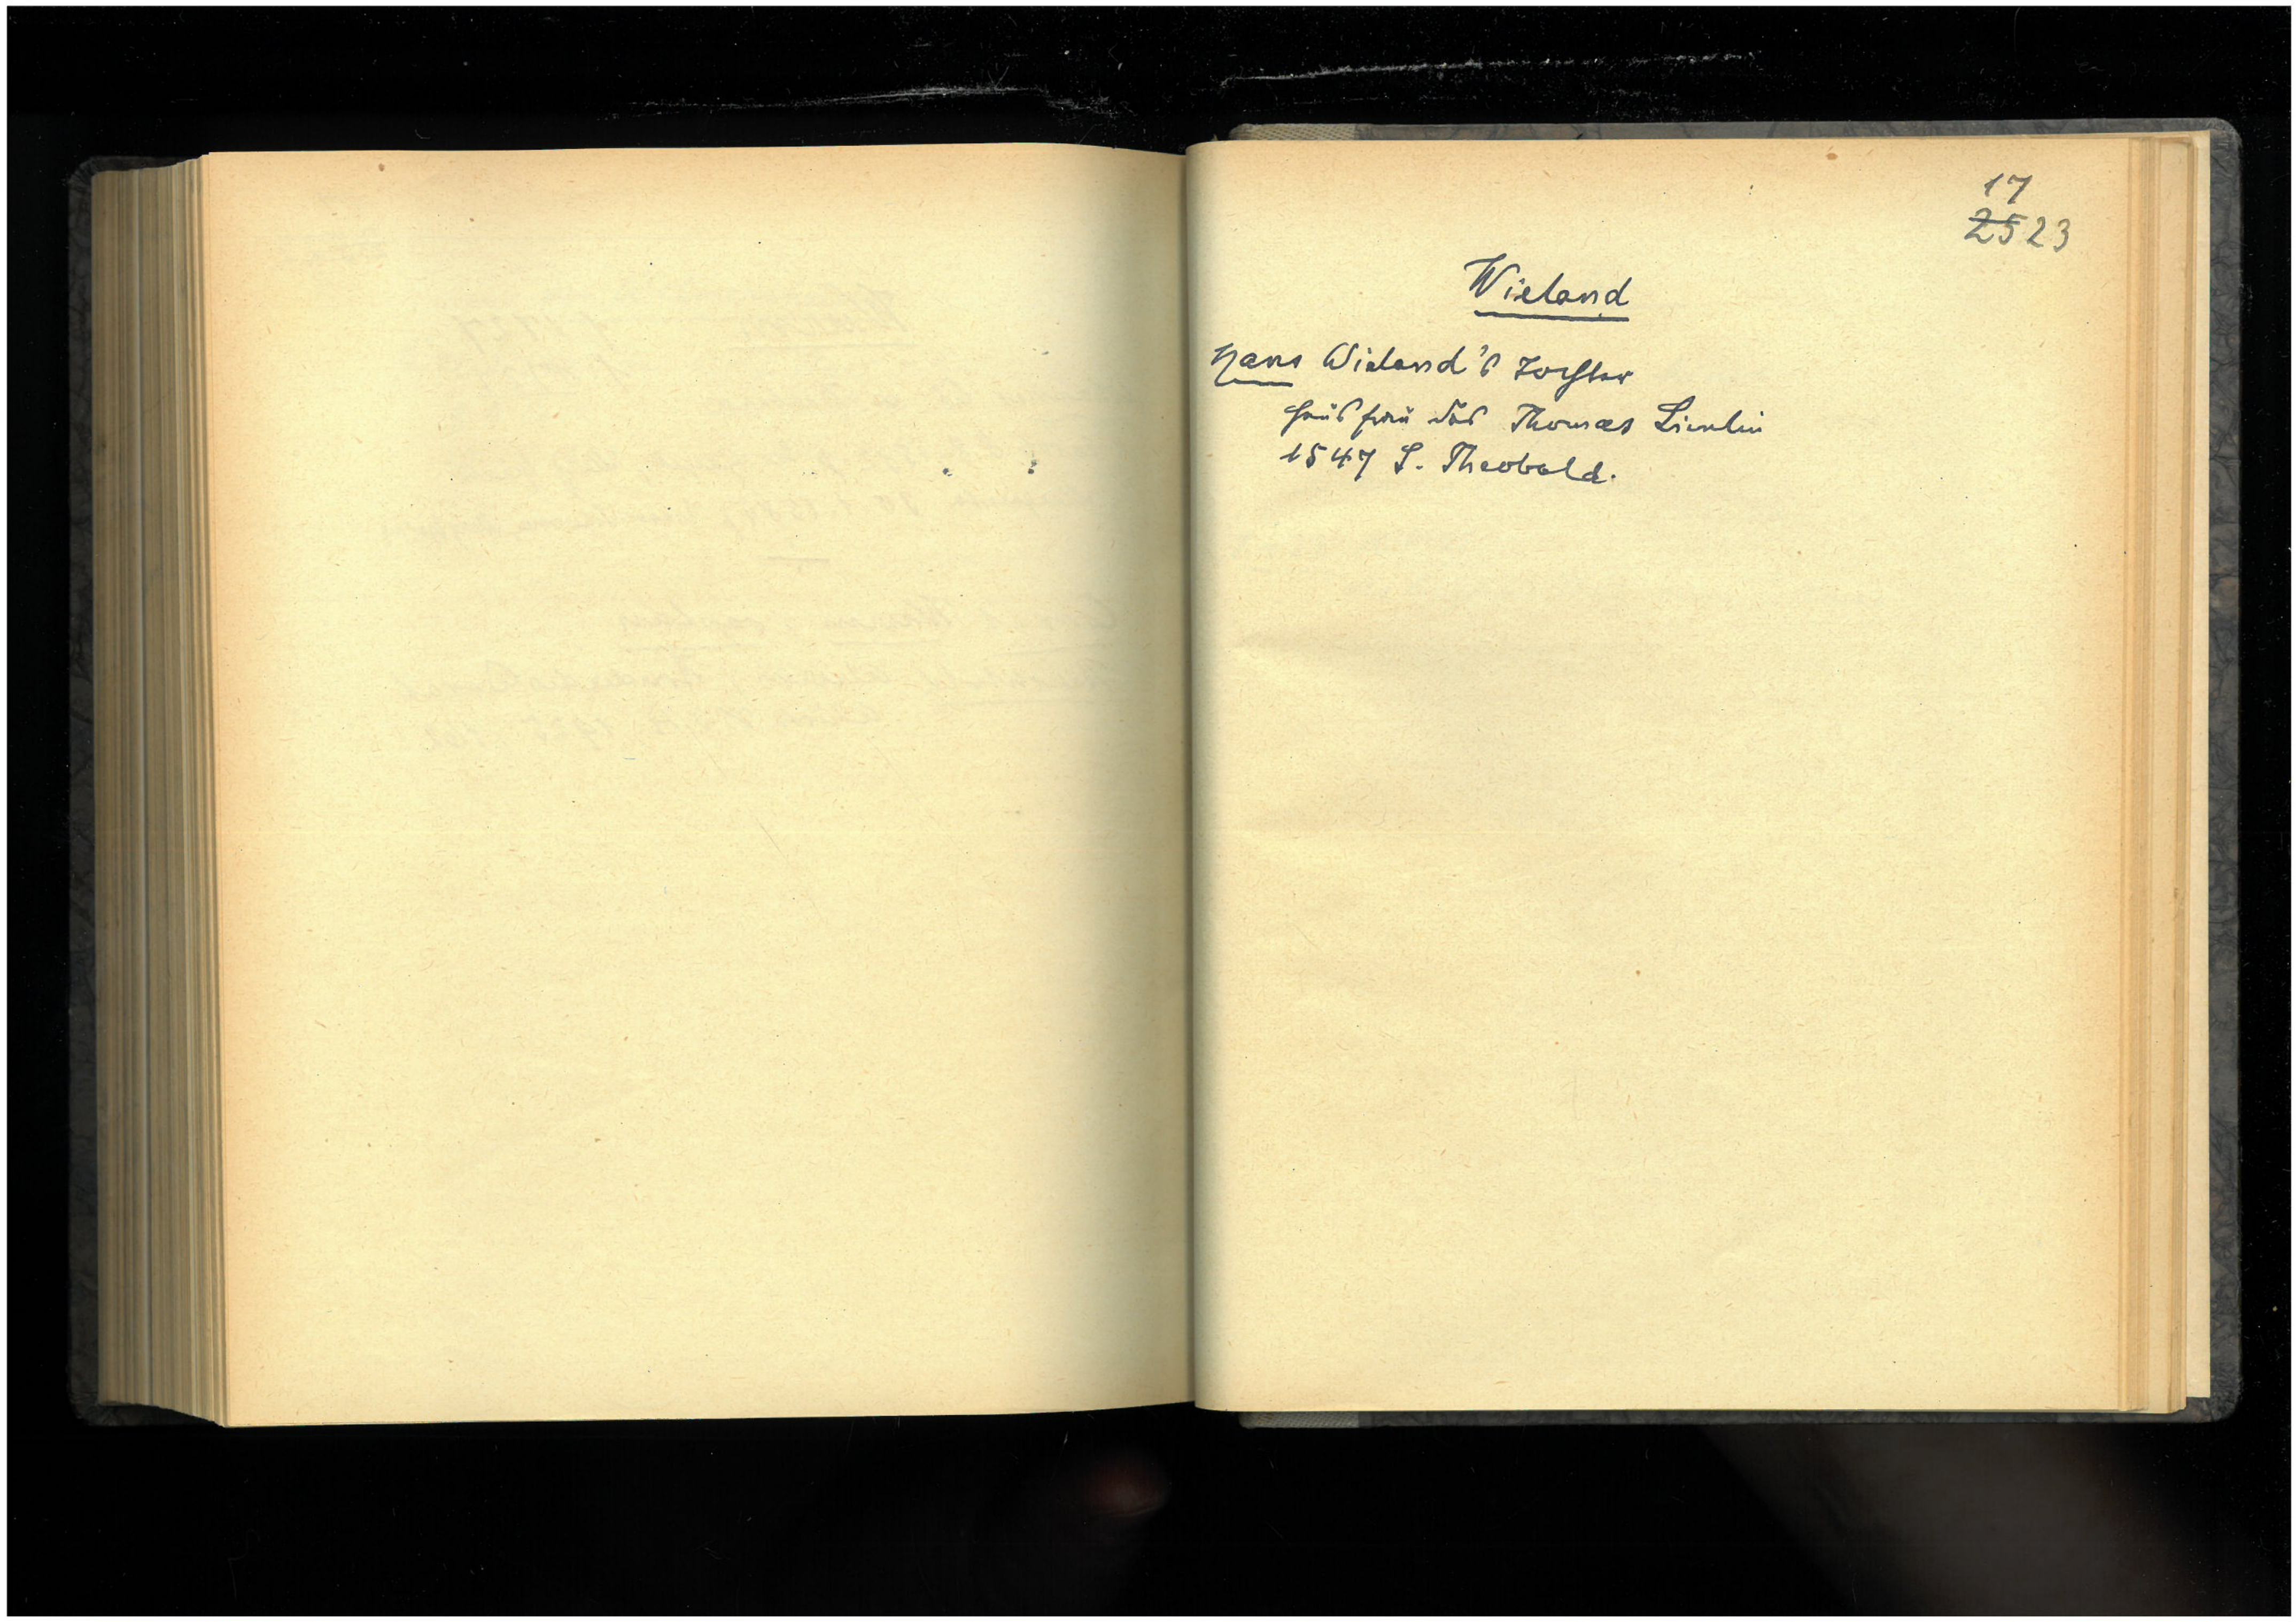 17
25 23
Wieland
Hans Wieland's Tochter
Hausfrau des Thomas
1547 S. Theobald.